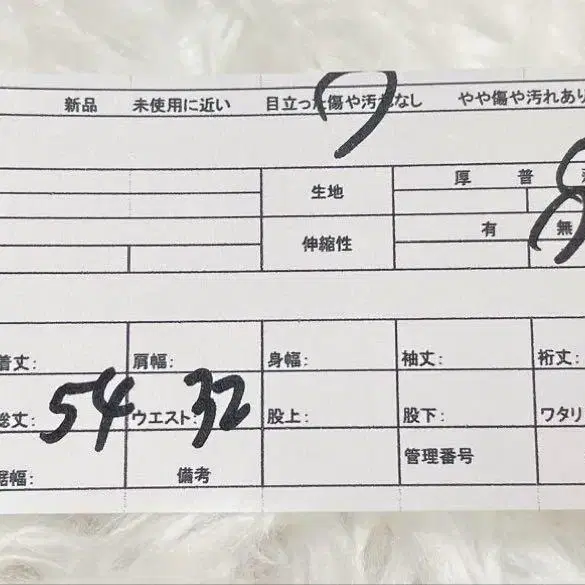 新品 未使用に近い 目立った傷や汚れなし やや傷や汚れあり
生地 厚 普
伸縮性 有 無
着丈: 肩幅: 身幅: 袖丈: 裄丈:
総丈: 54 ウエスト: 32 股上: 股下: ワタリ
裾幅: 備考 管理番号